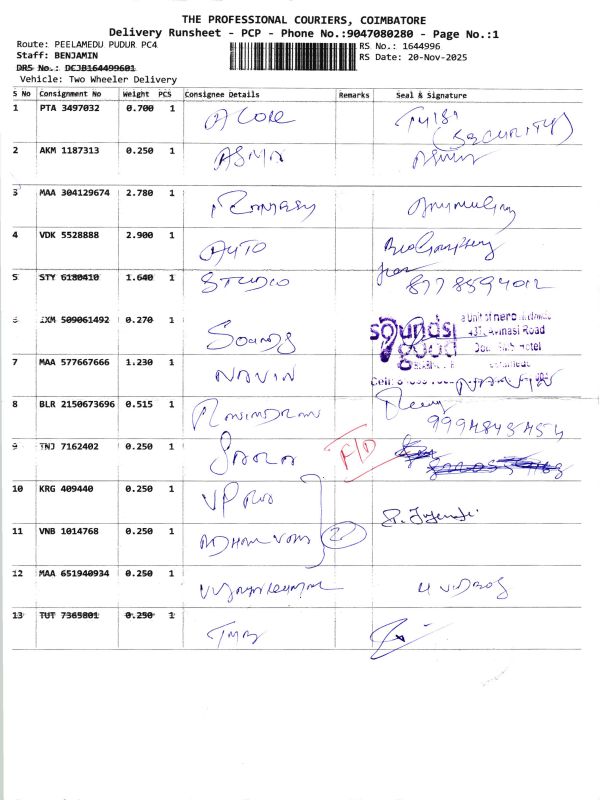 THE PROFESSIONAL COURIERS, COIMBATORE
Delivery Runsheet - PCP - Phone No.:9047080280 - Page No.:1
Route: PEELAMEDU PUDUR PC4
RS No.: 1644996
Staff: BENJAMIN
RS Date: 20-Nov-2025
DRS No.: DCJB164499601
Vehicle: Two Wheeler Delivery
S No Consignment No Weight PCS Consignee Details Remarks Seal & Signature
1 PTA 3497032 0.700 1 A CORE
(SECURITY)
2 AKM 1187313 0.250 1 ASMA
3 MAA 304129674 2.780 1
4 VDK 5528888 2.900 1 AUTO
5 STY 6180410 1.640 1 STUDIO 8778594012
6 IXM 509061492 0.270 1 SOUNDS
sounds good
Avinasi Road
7 MAA 577667666 1.230 1 NAVIN
8 BLR 2150673696 0.515 1 RAVINDRAN
9994843454
9 TNJ 7162402 0.250 1 F/D
10 KRG 409440 0.250 1 VP
11 VNB 1014768 0.250 1 2
12 MAA 651940934 0.250 1
13 TUT 7365801 0.250 1 TMB